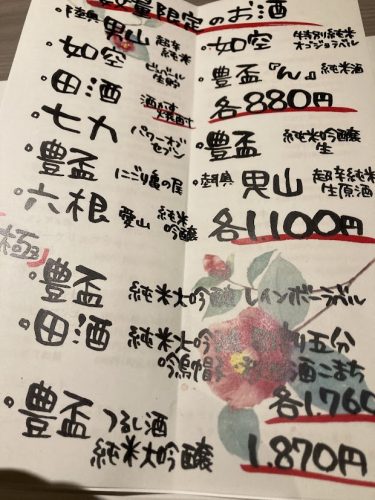 数量限定のお酒
・陸奥男山 超辛純米
・如空 生貯
・田酒
・七力 パワーオブセブン
・豊盃 にごり
・六根 愛山 純米吟醸
・如空 特別純米
・豊盃『ん』純米酒
各880円
・豊盃 純米吟醸 生
・陸奥男山 超辛純米 生原酒
各1,100円
極
・豊盃 純米大吟醸 レインボーラベル
・田酒 純米大吟醸
吟烏帽子
こまち
各1,760
・豊盃 つるし酒
純米大吟醸 1,870円